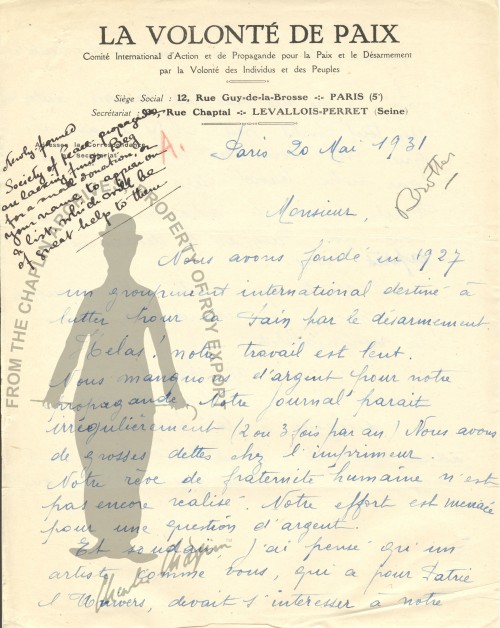 LA VOLONTÉ DE PAIX
Comité International d'Action et de Propagande pour la Paix et le Désarmement
par la Volonté des Individus et des Peuples
Siège Social : 12, Rue Guy-de-la-Brosse -:- PARIS (5e)
Secrétariat : Rue Chaptal -:- LEVALLOIS-PERRET (Seine)
Newly formed
Society of peace propaganda
are lacking funds. Beg
for a small donation,
your name to appear on
a list which will be
of great help to them
A.
Paris 20 Mai 1931
Brother
Monsieur,
Nous avons fondé en 1927
un groupement international destiné à
lutter pour la Paix par le désarmement.
Hélas! notre travail est lent.
Nous manquons d'argent pour notre
propagande. Notre journal paraît
irrégulièrement (2 ou 3 fois par an) Nous avons
de grosses dettes chez l'imprimeur.
Notre rêve de fraternité humaine n'est
pas encore réalisé. Notre effort est menacé
pour une question d'argent.
Et soudain j'ai pensé qu'un
artiste comme vous, qui a pour Patrie
l'Univers, devait s'intéresser à notre
FROM THE CHAPLIN ARCHIVES PROPERTY OF ROY EXPORT
Charlie Chaplin